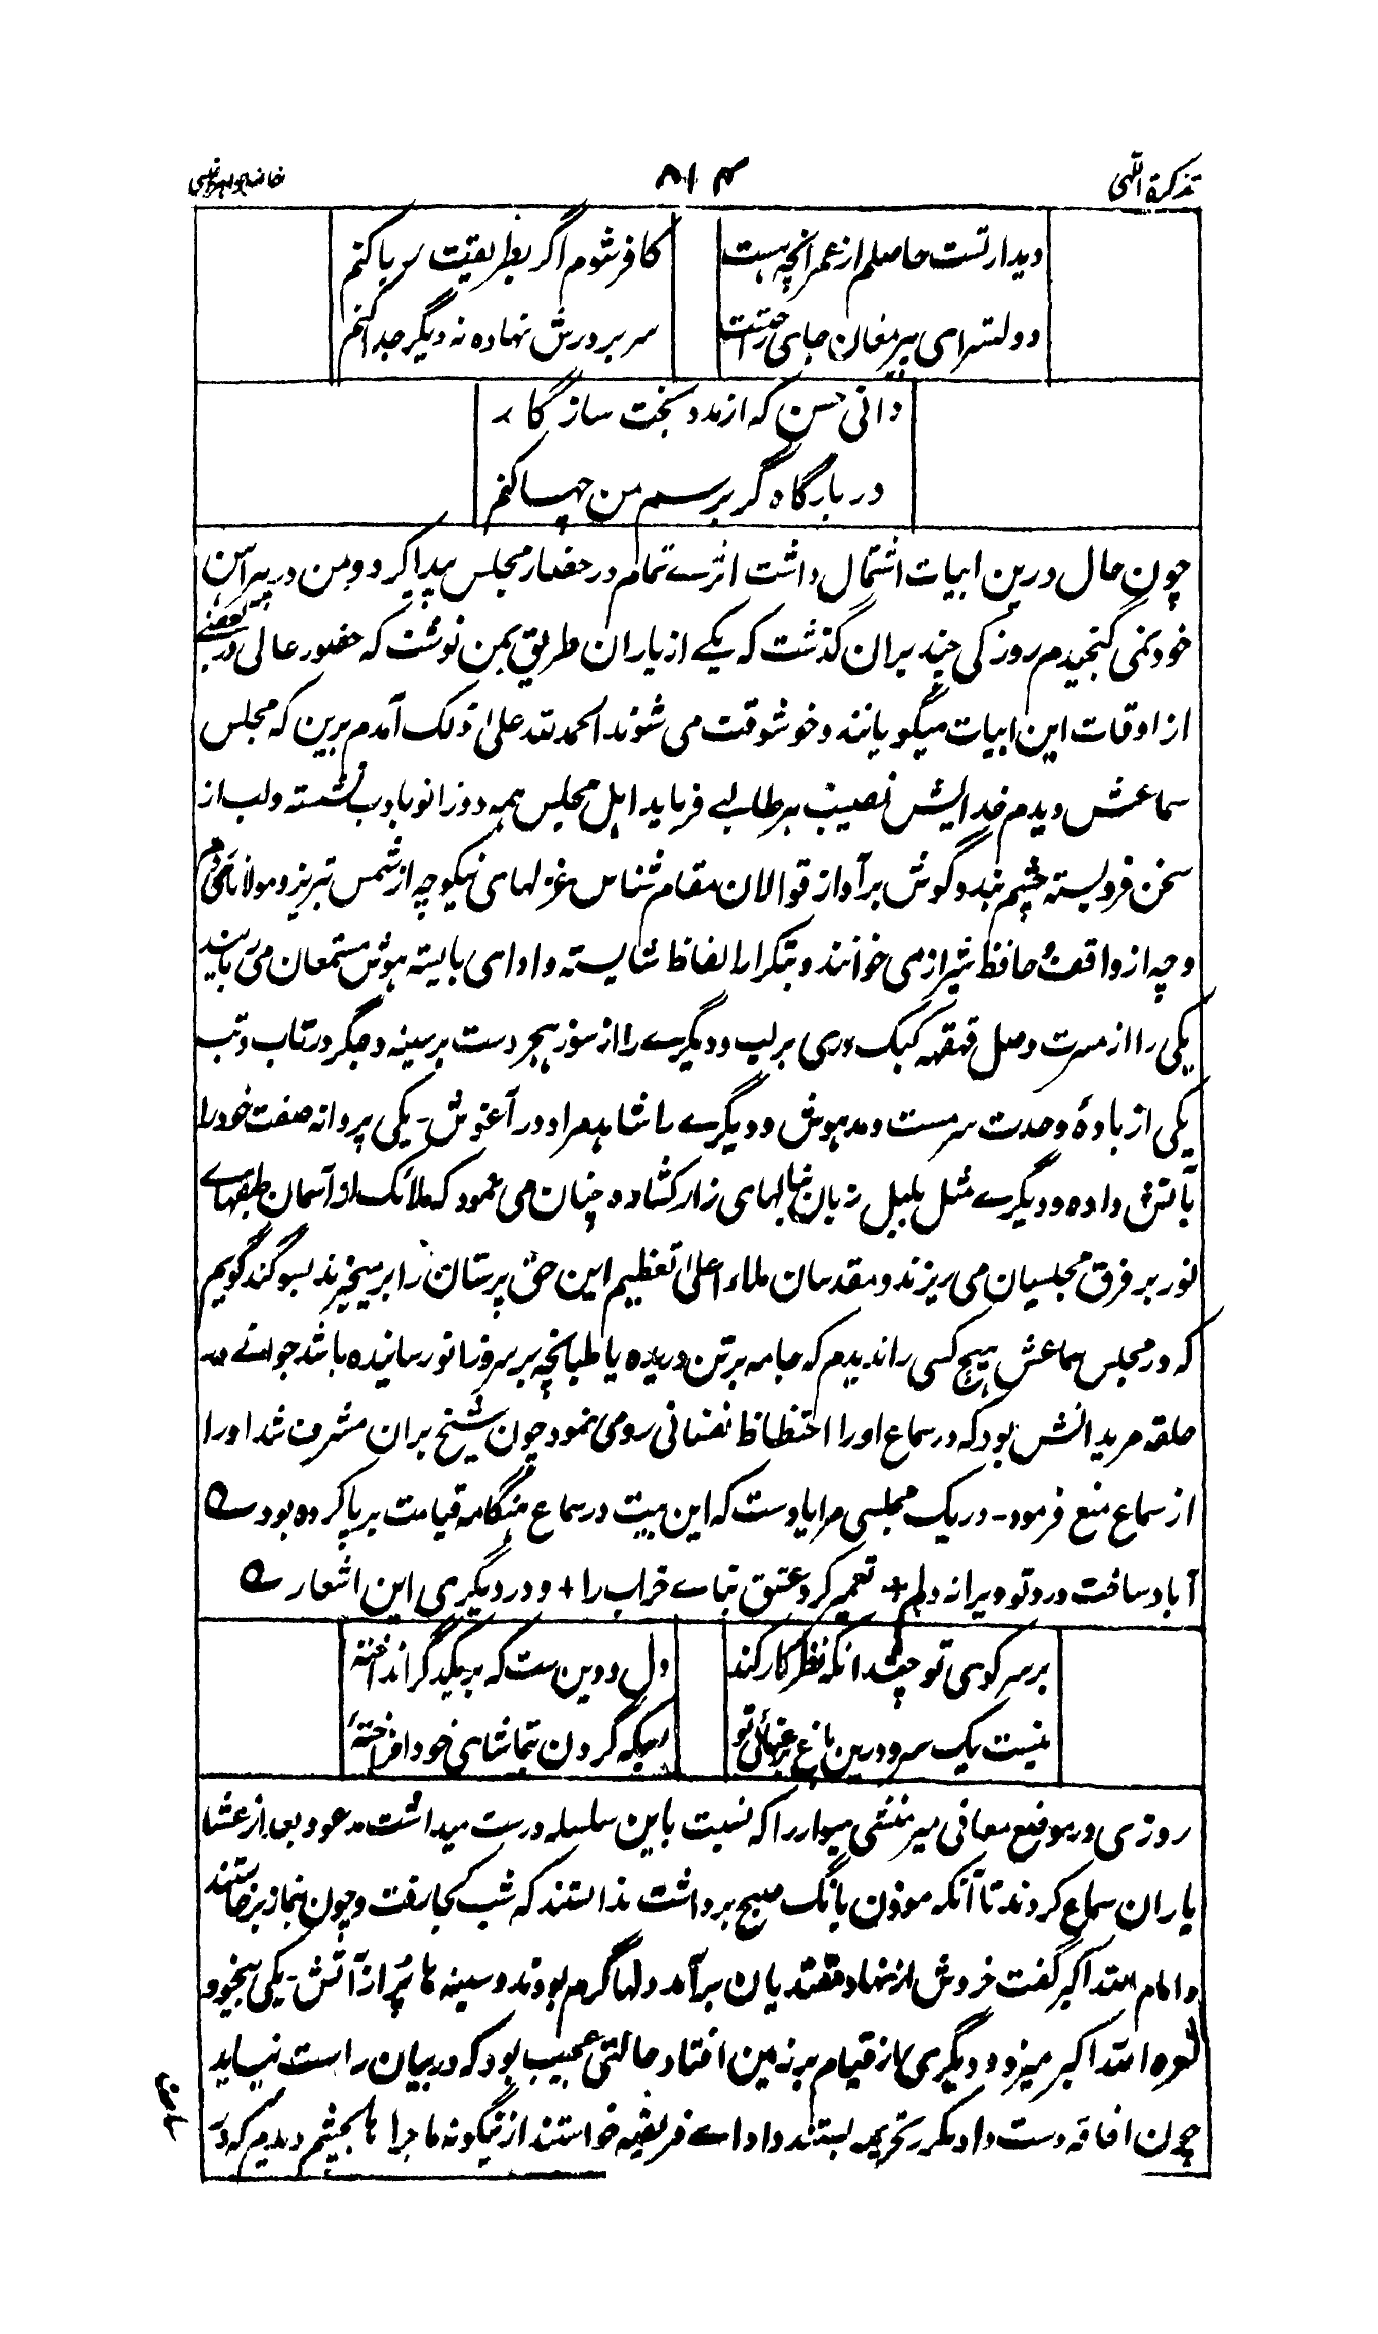 تذکرة اللہی
۸۱۴
دیدار تست حاصلم از عمر انچه هست
کافر شوم اگر بطریقیت ریا کنم
دولتسرای پیر مغان جای راحتست
سر بر درش نهاده نه دیگر جدا کنم
دانی حسن که از مدد بخت سازگار
در بارگاه گر برسم من چها کنم
چون حال درین ابیات اشتمال داشت اثرے تمام در حضار مجلس پیدا کرد و من در پیراهن
خود نمی گنجیدم روزکی چند بران گذشت که یکے از یاران طریق بمن نوشت که حضور عالی در بعضے
از اوقات این ابیات میگویانند و خوشوقت می شوند الحمد لله علیٰ ذلک آمدم برین که مجلس
سماعش دیدم خدایش نصیب هر طالبے فرماید اهل مجلس همه دوزانو بادب نشسته و لب از
سخن فروبسته چشم بند و گوش بر آواز قوالان مقام شناس غزلهای نیکو چه از شمس تبریز و مولانا
و چه از واقف و حافظ شیراز می خوانند و بتکرار الفاظ شایسته و ادای بایسته هوش مستمعان می ربایند
یکی را از مسرت وصل قهقهه کبک دری بر لب و دیگرے را از سوز هجر دست بر سینه و جگر در تاب و تب
یکی از بادۀ وحدت سرمست و مدهوش و دیگرے را شاهد مراد در آغوش - یکی پروانه صفت خود را
بآتش داده و دیگرے مثل بلبل زبان بنالهای زار کشاده چنان می نمود که ملائک از آسمان طبقهاے
نور بر فرق مجلسیان می ریزند و مقدسان ملاء اعلیٰ تعظیم این حق پرستان را برمیخیزند بسوگند گویم
که در مجلس سماعش هیچ کسی را ندیدم که جامه بر تن دریده یا طبانچه بر سر و زانو رسانیده باشد جوانے در
حلقه مریدانش بود که در سماع او را احتظاظ نفسانی رو می نمود چون شیخ بران مشرف شد او را
از سماع منع فرمود - در یک مجلسی مرا یادست که این بیت در سماع هنگامه قیامت برپا کرده بود ے
آباد ساخت درد تو ویرانه دلم + تعمیر کرد عشق بناے خراب را + و در دیگری این اشعار ے
بر سر کوی تو چشد آنکه نظر کار کند
دل و دین ست که بر یکدگر انداختۀ
نیست یک سرو درین باغ برعنائی تو
بسکه گردن بتماشای خود افراختۀ
روزی در موضع معافی میر منشی میوار را که نسبت باین سلسله درست میداشت مدعو و بعد از عشا
یاران سماع کردند تا آنکه موذن بانگ صبح برداشت ندانستند که شب کجا رفت و چون بنماز برخاستند
و امام الله اکبر گفت خروش از نهاد مقتدیان برآمد دلها گرم بودند و سینه ها پُر از آتش - یکی بیخود
نعره الله اکبر میزد و دیگری از قیام بر زمین افتاد حالتی عجیب بود که در بیان راست نیاید
چون افاقه دست داد مکرر تحریمه بستند و اداے فریضه خواستند ازینگونه ماجرا ها بچشم دیدم که در